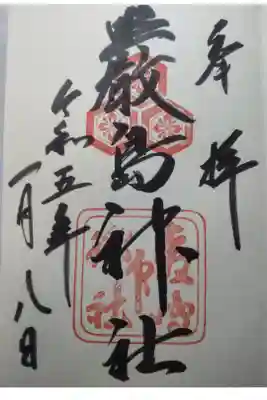 奉拝
嚴島神社
令和五年
一月八日